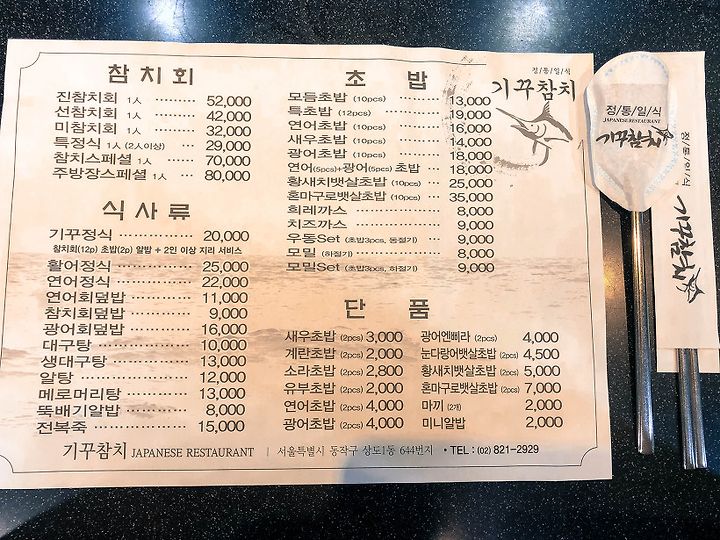 참치회
진참치회 1人 ········· 52,000
선참치회 1人 ········· 42,000
미참치회 1人 ········· 32,000
특정식 1人 (2人이상) ···· 29,000
참치스페셜 1人 ······ 70,000
주방장스페셜 1人 ···· 80,000
식사류
기꾸정식 ················· 20,000
참치회(12p) 초밥(2p) 알밥 + 2인 이상 지리 서비스
활어정식 ················· 25,000
연어정식 ················· 22,000
연어회덮밥 ············· 11,000
참치회덮밥 ············· 9,000
광어회덮밥 ············· 16,000
대구탕 ···················· 10,000
생대구탕 ················· 13,000
알탕 ······················· 12,000
메로머리탕 ············· 13,000
뚝배기알밥 ············· 8,000
전복죽 ···················· 15,000
초 밥
모듬초밥 (10pcs) ········· 13,000
특초밥 (12pcs) ············ 19,000
연어초밥 (10pcs) ········· 16,000
새우초밥 (10pcs) ········· 14,000
광어초밥 (10pcs) ········· 18,000
연어(5pcs)+광어(5pcs) 초밥 ··· 18,000
황새치뱃살초밥 (10pcs) ··· 25,000
혼마구로뱃살초밥 (10pcs) ··· 35,000
희레까스 ··················· 8,000
치즈까스 ··················· 9,000
우동Set (초밥3pcs, 동절기) ··· 9,000
모밀 (하절기) ··············· 8,000
모밀Set (초밥3pcs, 하절기) ··· 9,000
단 품
새우초밥 (2pcs) 3,000
계란초밥 (2pcs) 2,000
소라초밥 (2pcs) 2,800
유부초밥 (2pcs) 2,000
연어초밥 (2pcs) 4,000
광어초밥 (2pcs) 4,000
광어엔삐라 (2pcs) 4,000
눈다랑어뱃살초밥 (2pcs) 4,500
황새치뱃살초밥 (2pcs) 5,000
혼마구로뱃살초밥 (2pcs) 7,000
마끼 (2개) 2,000
미니알밥 2,000
정/통/일/식
기꾸참치
기꾸참치 JAPANESE RESTAURANT | 서울특별시 동작구 상도1동 644번지 • TEL : (02) 821-2929
정/통/일/식
JAPANESE RESTAURANT
기꾸참치
정/통/일/식
기꾸참치